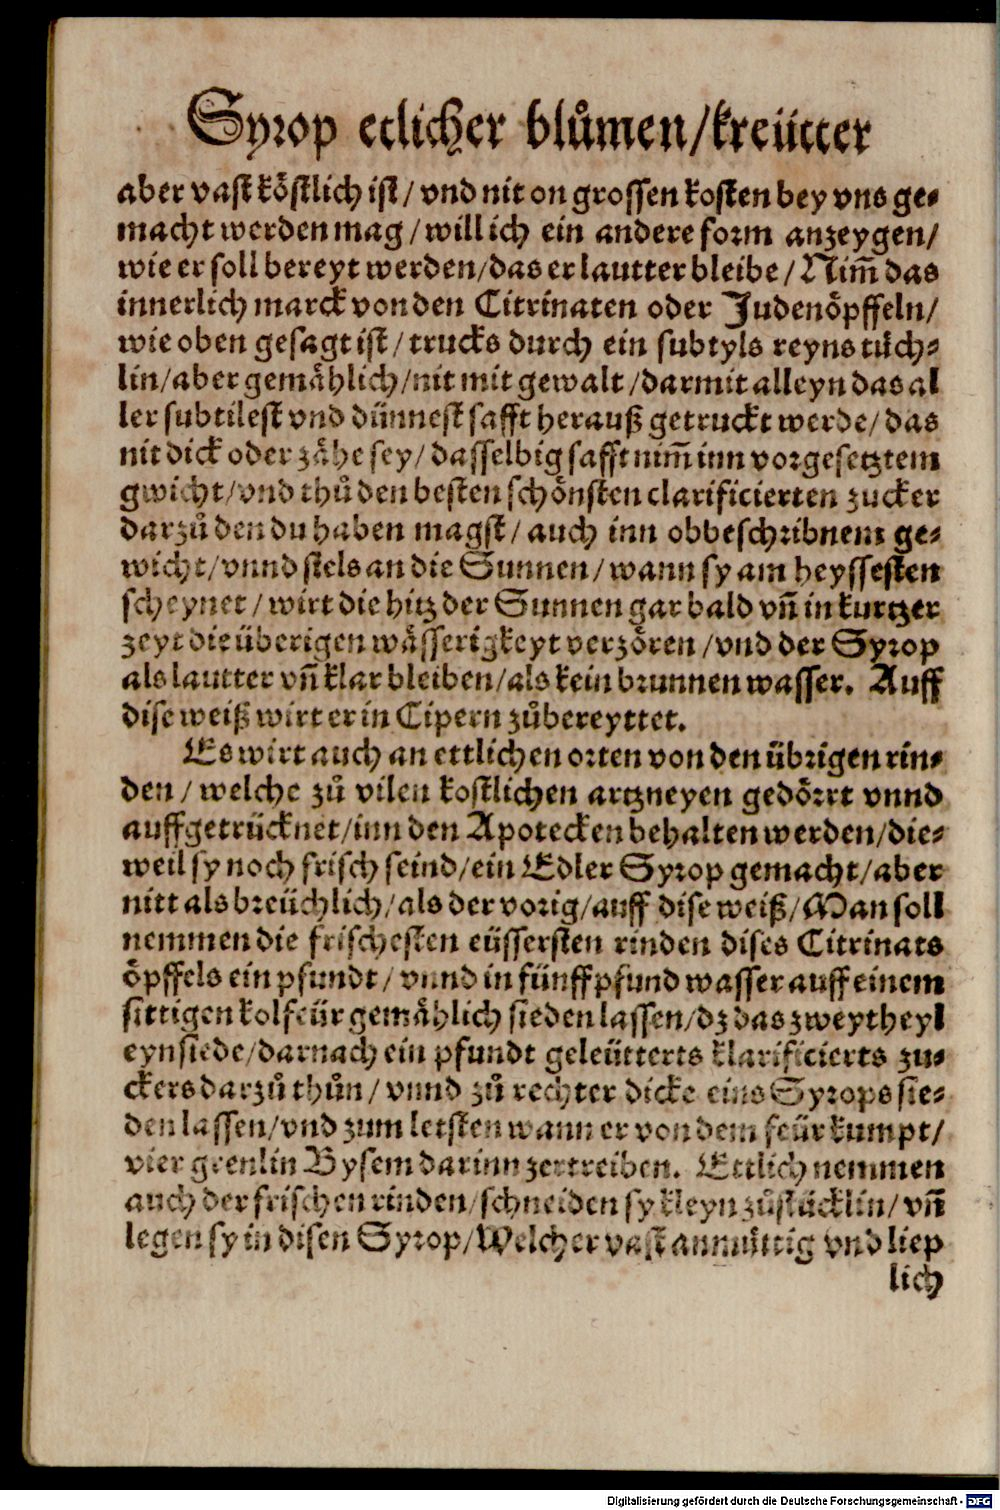 Syrop etlicher blůmen/kreütter
aber vast köstlich ist/ vnd nit on grossen kosten bey vns ge-
macht werden mag/ will ich ein andere form anzeygen/
wie er soll bereyt werden/das er lautter bleibe/ Nim̃ das
innerlich marck von den Citrinaten oder Judenöpffeln/
wie oben gesagt ist/ trucks durch ein subtyls reyns tüch-
lin/aber gemählich/nit mit gewalt/darmit alleyn das al
ler subtilest vnd dünnest safft herauß getruckt werde/ das
nit dick oder zähe sey/ dasselbig safft nim̃ inn vorgesetztem
gwicht/vnd thů den besten schönsten clarificierten zucker
darzů den du haben magst/ auch inn obbeschribnem ge-
wicht/vnnd stels an die Sunnen/ wann sy am heyssesten
scheynet/ wirt die hitz der Sunnen gar bald vñ in kurtzer
zeyt die überigen wässerigkeyt verzören/vnd der Syrop
als lautter vñ klar bleiben/als kein brunnen wasser. Auff
dise weiß wirt er in Cipern zůbereyttet.
Es wirt auch an ettlichen orten von den übrigen rin-
den/ welche zů vilen kostlichen artzneyen gedörrt vnnd
auffgetrücknet/inn den Apotecken behalten werden/die-
weil sy noch frisch seind/ein Edler Syrop gemacht/aber
nitt als breüchlich/als der vorig/auff dise weiß/Man soll
nemmen die frischesten eüssersten rinden dises Citrinats
öpffels ein pfundt/ vnnd in fünff pfund wasser auff einem
sittigen kolfeür gemählich sieden lassen/dz das zweytheyl
eynsiede/darnach ein pfundt geleütterts klarificierts zu-
ckers darzů thůn/ vnnd zů rechter dicke eins Syrops sie-
den lassen/vnd zum letsten wann er von dem feür kumpt/
vier grenlin Bysem darinn zertreiben. Ettlich nemmen
auch der frischen rinden/schneiden sy kleyn zůstücklin/ vñ
legen sy in disen Syrop/Welcher vast anmüttig vnd liep
lich
Digitalisierung gefördert durch die Deutsche Forschungsgemeinschaft - DFG